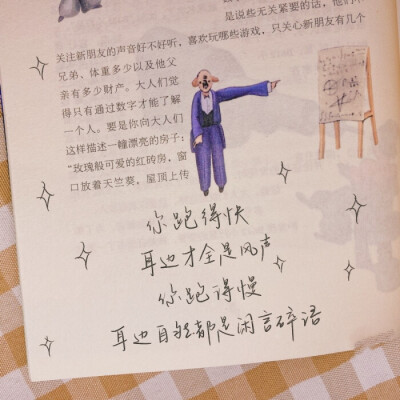 是说些无关紧要的话，他们不
关注新朋友的声音好不好听，喜欢玩哪些游戏，只关心新朋友有几个
兄弟、体重多少以及他父
亲有多少财产。大人们觉
得只有通过数字才能了解
一个人。要是你向大人们
这样描述一幢漂亮的房子：
“玫瑰般可爱的红砖房，窗
口放着天竺葵，屋顶上传
你跑得快
耳边才全是风声
你跑得慢
耳边自然都是闲言碎语